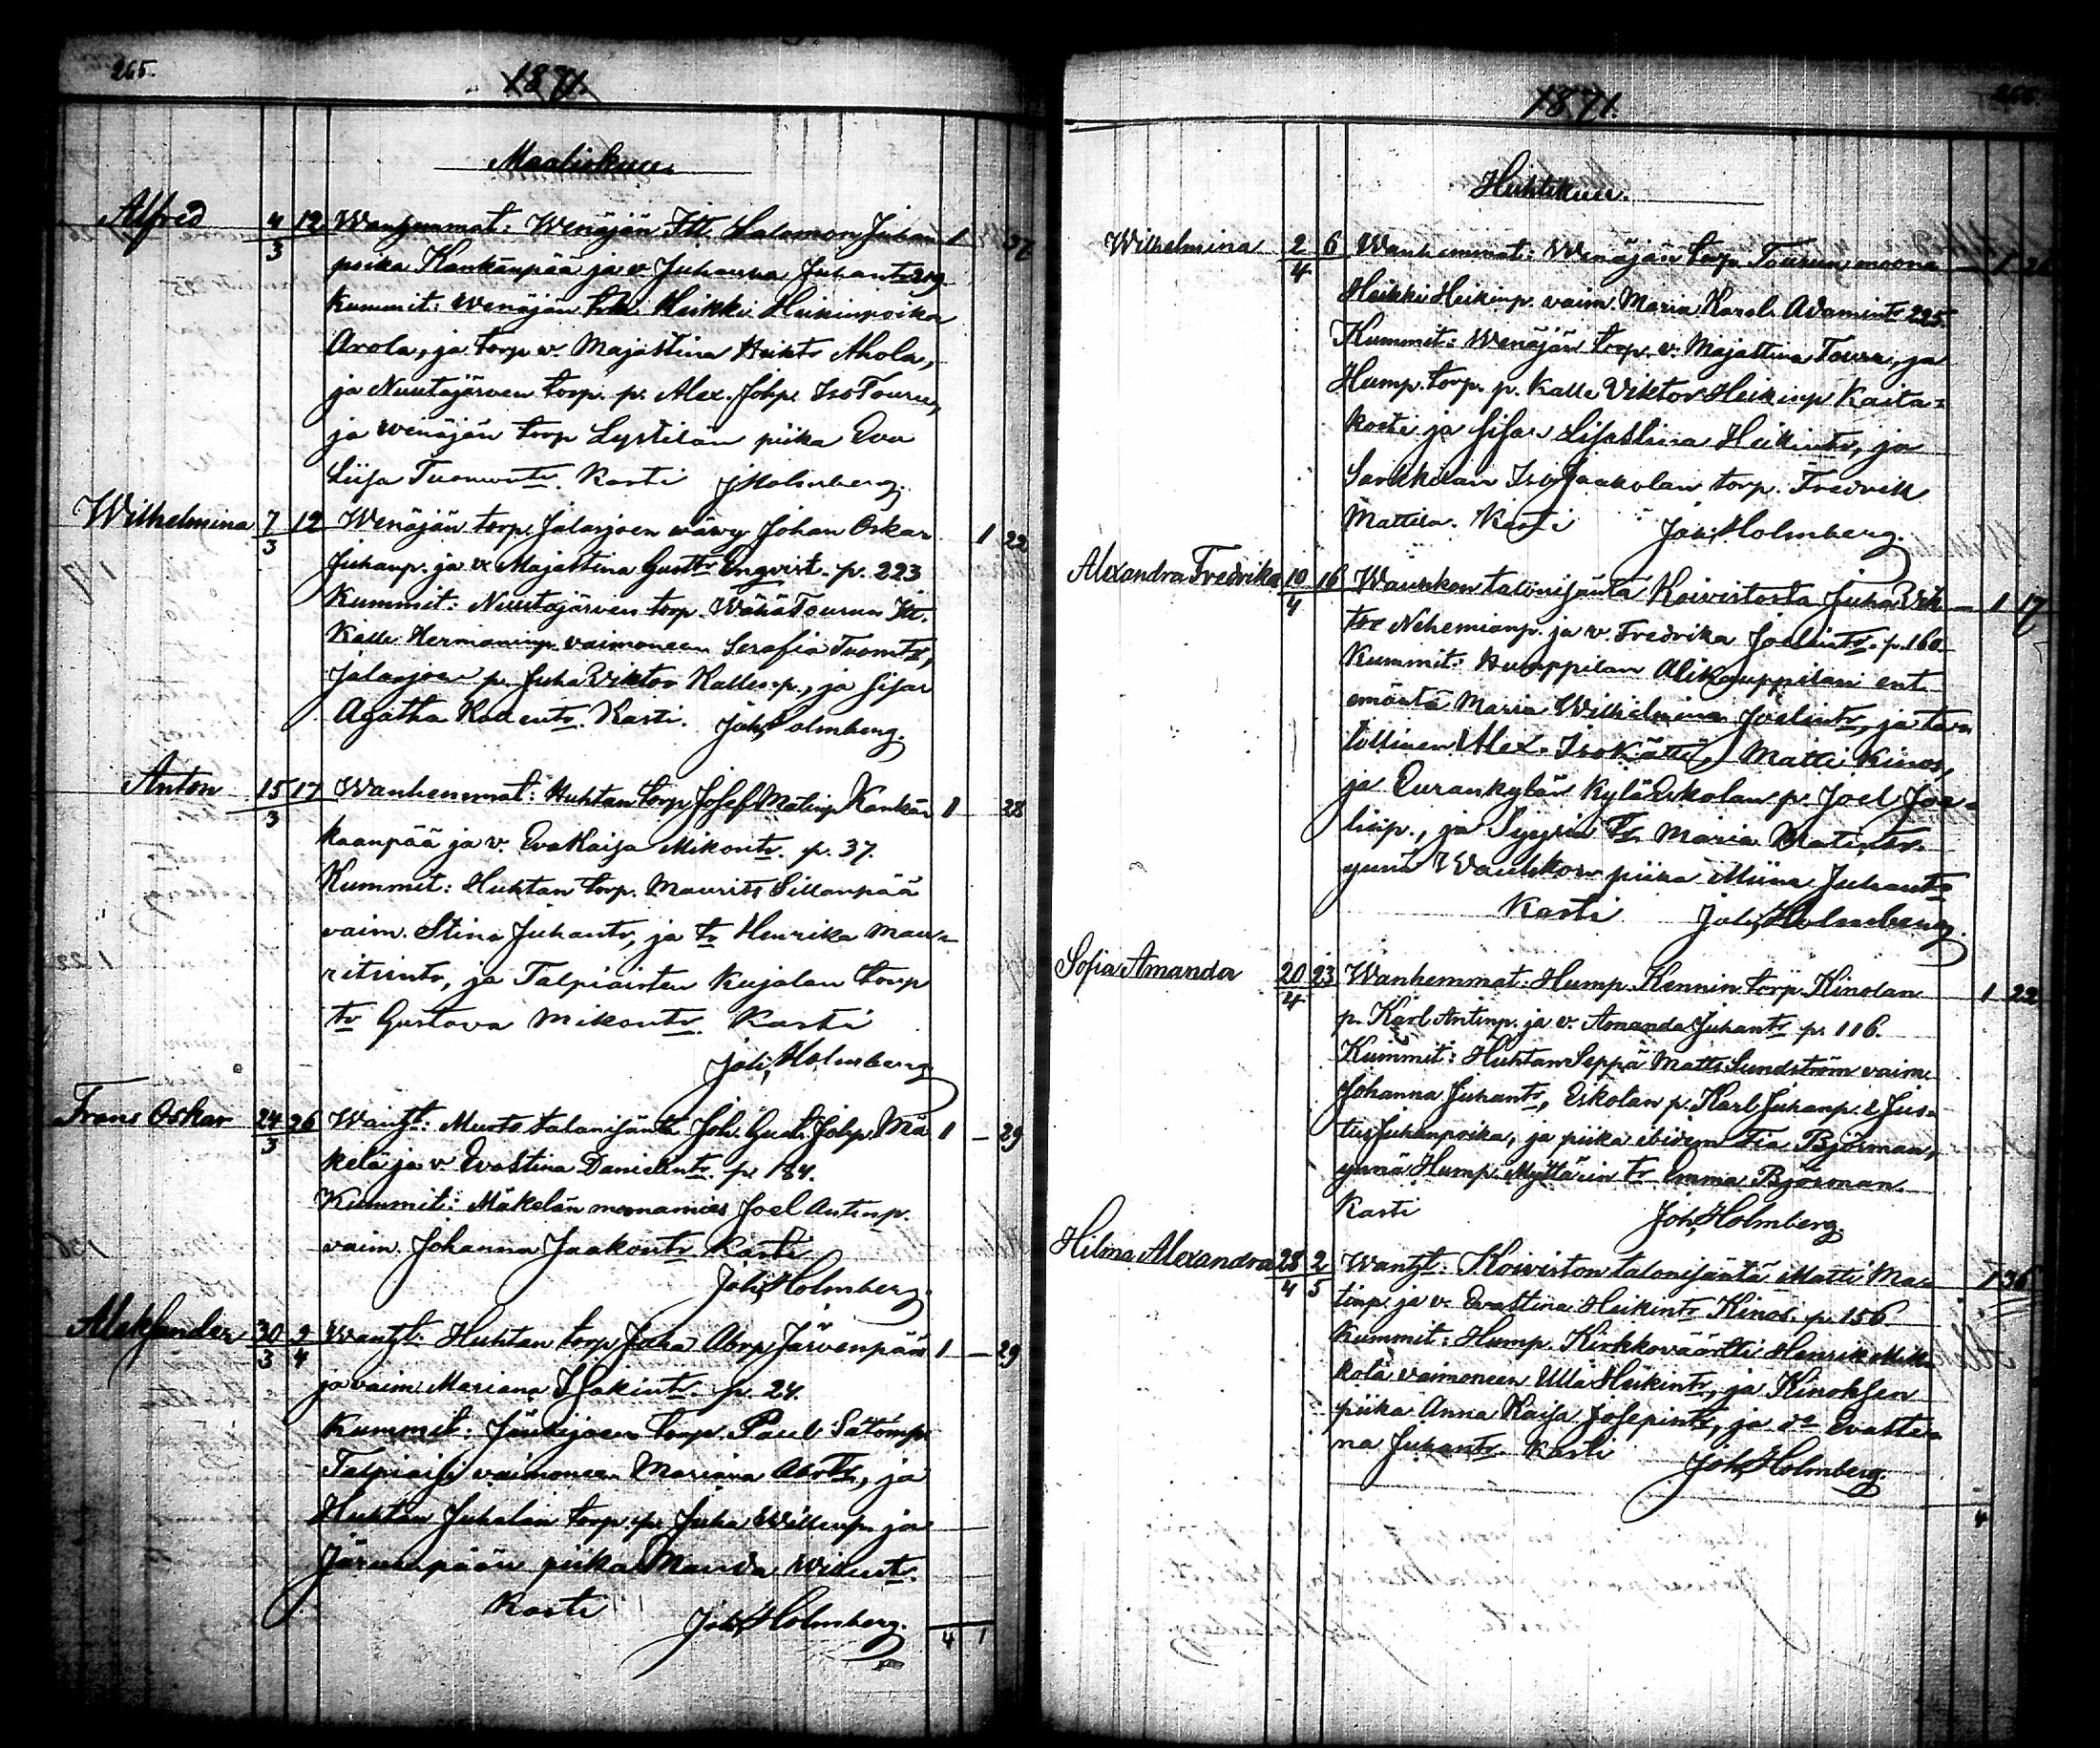 265.
1871.
Maaliskuu.
Alfred 4/3 12 Wanhemmat: Wenäjän Itll. Salomon Juhan 1 37
poika Kankanpää ja v. Juhanna Juhantr 219.
Kummit: Wenäjän Heikki Heikinpoika
Arola, ja torp. v. Majastina Heikts Ahola,
ja Nuutajärven torp. p. Alex. Johp. Iso Touru,
ja Wenäjän torp Lystilän piika Eva
Liisa Tuomontr. Kasti J Holmberg.
Wilhelmina 7/3 12 Wenäjän torp. Jalasjoen wäwy Johan Oskar 1 22
Juhanp. ja v. Majastina Gustr Engvist. p. 223
Kummit: Nuutajärven torp. Wähä Tourun Itll.
Kalle Hermaninp. vaimoneen Serafia Tuomtr,
Jalasjoen p. Juha Viktor Kallenp., ja sisar
Agatha Kallentr. Kasti. Joh. Holmberg.
Anton 15/3 17 Wanhemmat: Huhtan torp Josef Matinp Kankän 1 28
kaanpää ja v. Eva Kaisa Mikontr. p. 37.
Kummit: Huhtan torp. Maurits Sillanpää
vaim. Stina Juhantr, ja tr Henrika Mau-
ritsintr, ja Talpiaisten Kujalan torp
tr Gustava Mikontr. Kasti
Joh. Holmberg
Frans Oskar 24/3 26 Wanht: Murto talonisäntä Joh. Gust. Johp. Mä 1 – 29
kelä ja v Evastina Danielintr. p. 184.
Kummit: Mäkelän moonamies Joel Antinp.
vaim. Johanna Jaakontr Kasti
Joh. Holmberg.
Aleksander 30/3 2/4 Wanht: Huhtan torp Juha Abrp Järvenpää 1 – 29
ja vaim. Mariana Isakintr. p. 24.
Kummit: torp. Paul
Talpiaisi vaimoneen Mariana Abrtr, ja
Huhtan Juhalan torp. p. Juha Willenp. ja
Järvenpään piika Manda
Kasti
Joh. Holmberg. 4 1
266.
1871.
Huhtikuu.
Wilhelmina 2/4 6 Wanhemmat: Wenäjän torp. Tourun moona – 1
Heikki Heikinp. vaim. Maria Karol. Adamintr 225
Kummit: Wenäjän torp. v. Majastina Touru, ja
Hump. torp. p. Kalle Viktor Heikinp Kaita-
kosti ja sisar Lisastina Heikintr, ja
Sarkkilan Iso Jaakolan torp. Fredrik
Mattila. Kasti Joh. Holmberg.
Alexandra Fredrika 10/4 16 Wauhkon talonisäntä Koivistosta Juha Vik – 1 17
tor Nehemianp. ja v. Fredrika Joelintr. p. 160
Kummit: Humppilan Alikauppilan ent.
emäntä Maria Wilhelmina Joelintr, ja tor
tillinen Alex. Isokättö, Matti Kinos,
ja Eurankylän Kylä Eskolan p. Joel Joe-
linp., ja tr. Maria Matintr.
ynnä Wauhkon piika Miina Juhantr
Kasti Joh. Holmberg.
Sofia Amanda 20/4 23 Wanhemmat: Hump. Kennin torp Kinolan 1 22
p. Karl Antinp. ja v. Amanda Juhantr p. 116.
Kummit: Huhtan Seppä Matts Sundström vaim.
Johanna Juhantr, Eskolan p. Karl Juhanp. & Jus-
tus Juhanpoika, ja piika ibidem Fia Björman,
ynnä Hump. Myttärin tr Emma Björman.
Kasti Joh. Holmberg.
Hilma Alexandra 28/4 2/5 Wanht: Koiviston talonisäntä Matti Ma- 1 36
tinp. ja v. Evastina Heikintr Kinos. p. 156
Kummit: Hump. Kirkkoväärtti Henrik Mik-
kola vaimoneen Ulla Heikintr, ja Kinoksen
piika Anna Kaisa Josepintr, ja do Evasti-
na Juhantr. Kasti Joh. Holmberg.
4